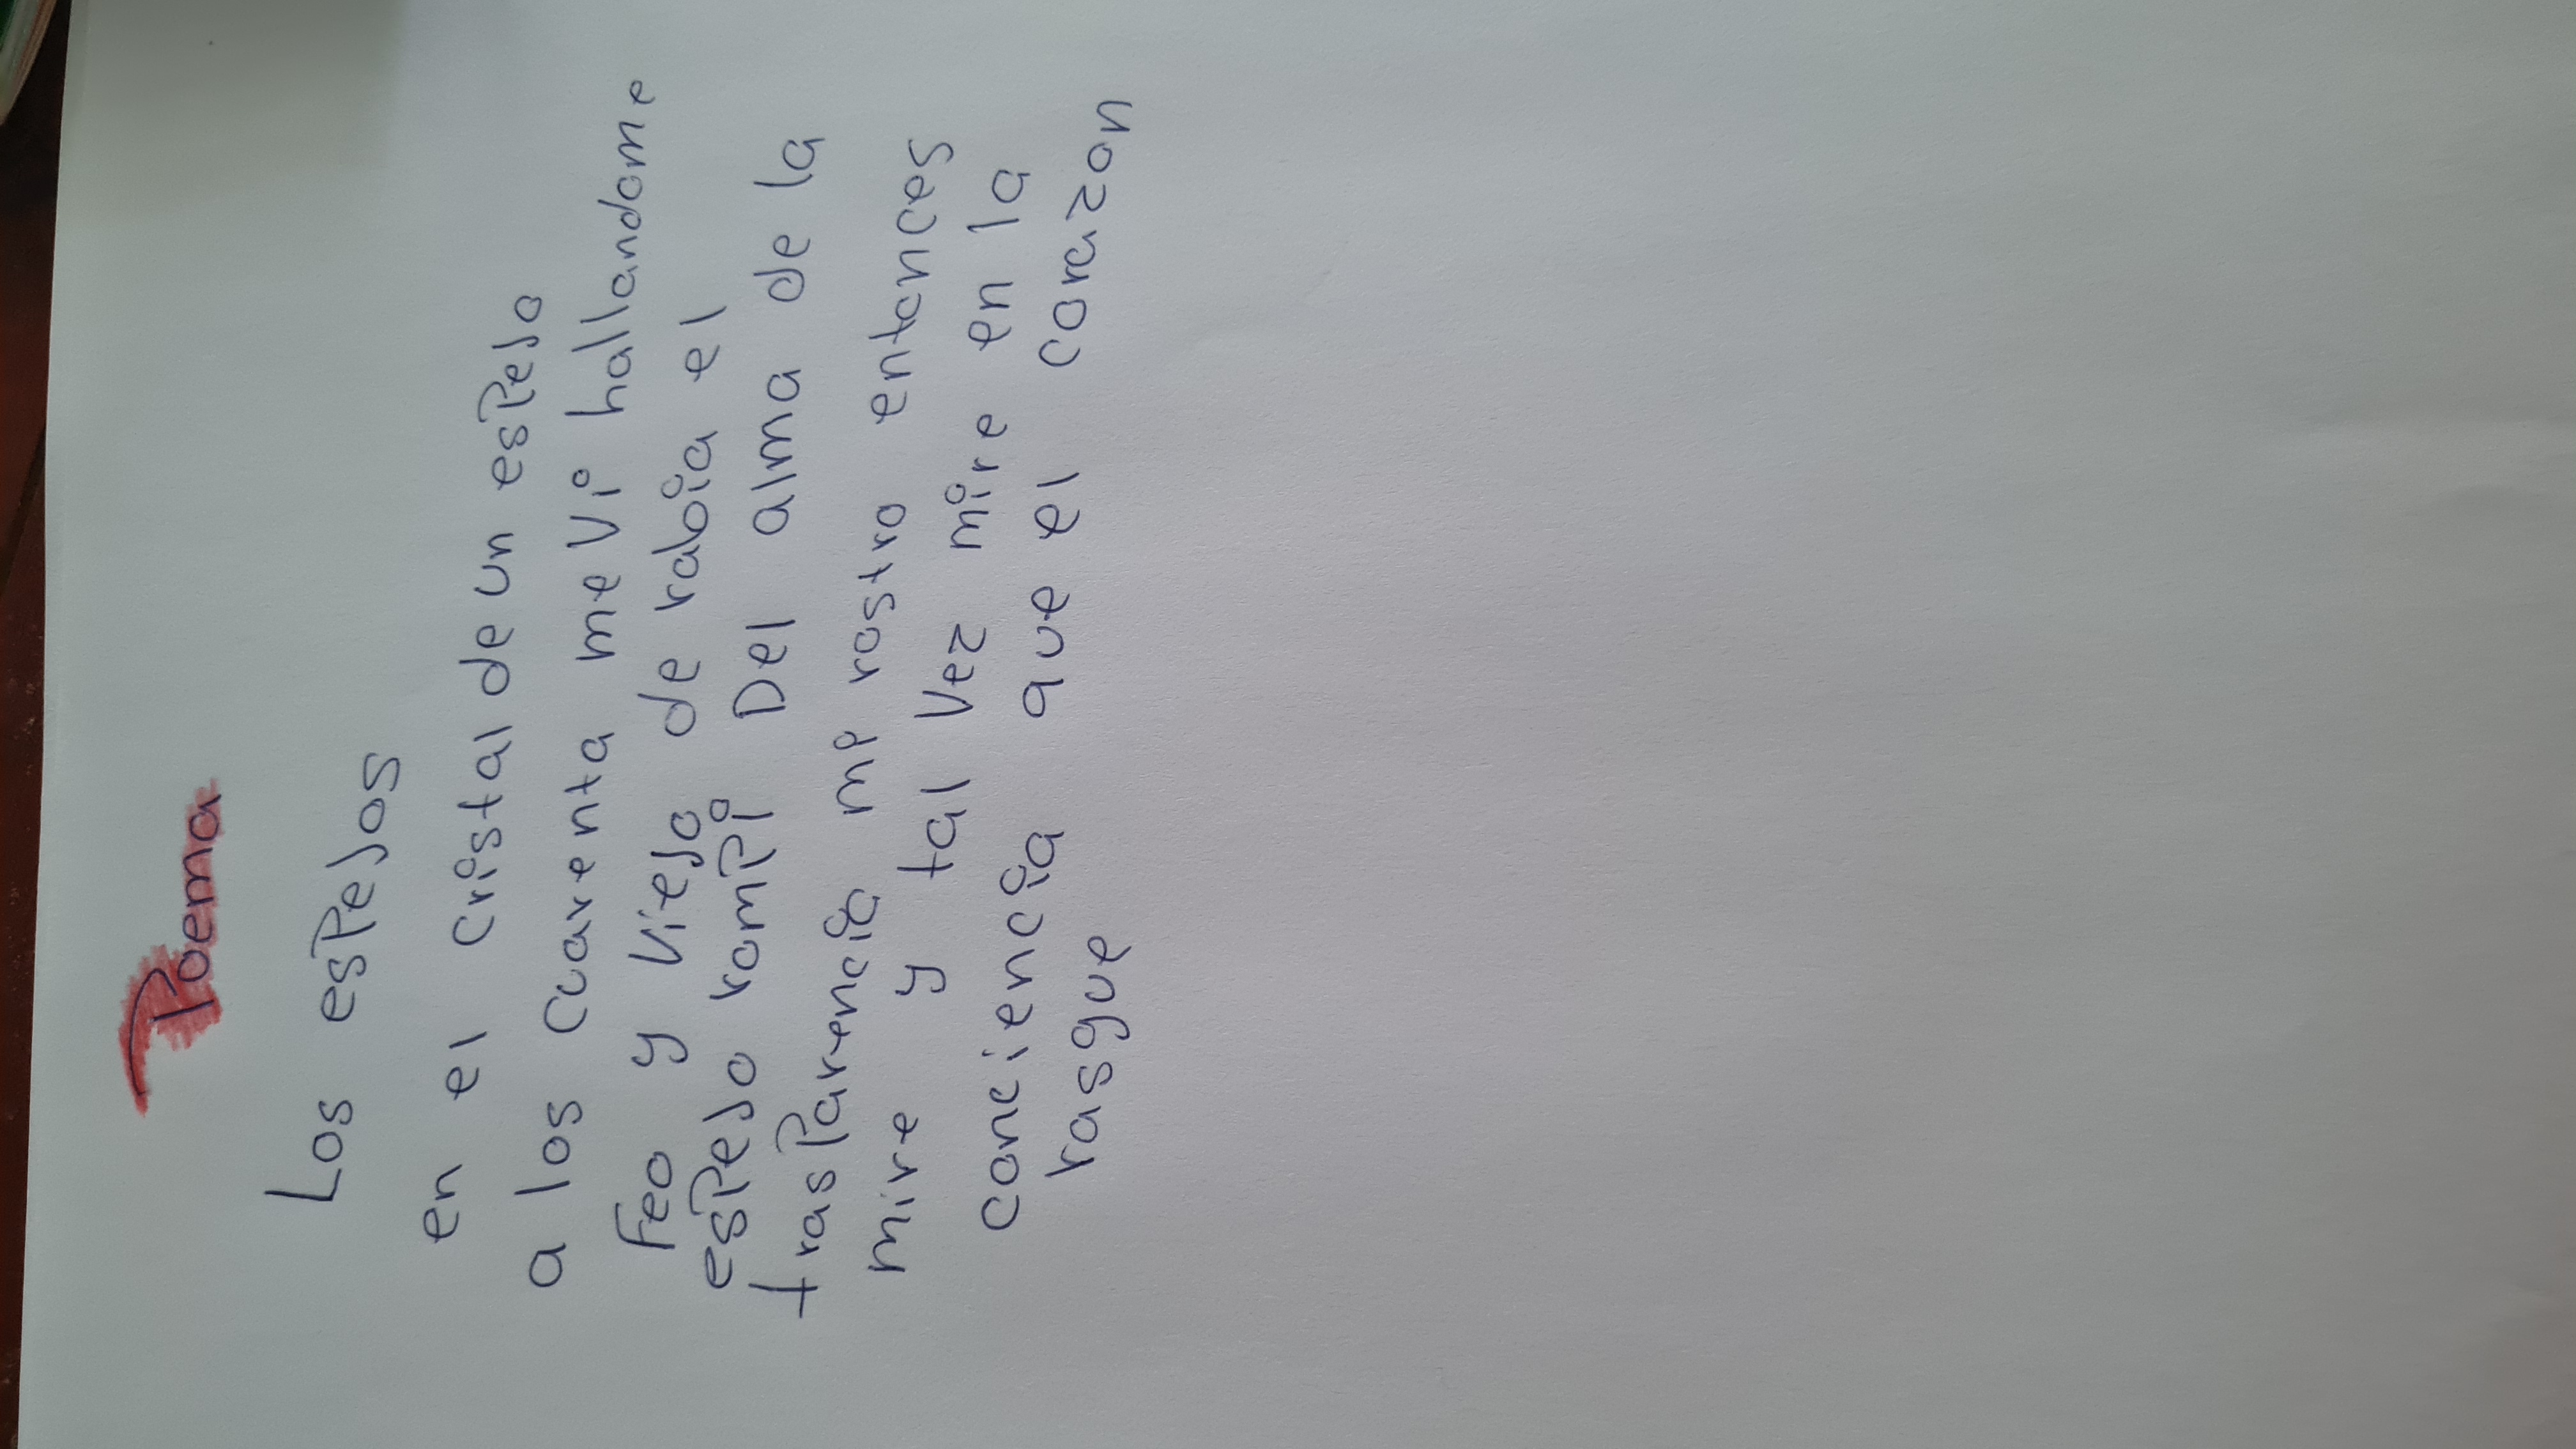 Poema
Los espejos
en el cristal de un espejo
a los cuarenta me vi hallandome
Feo y viejo de rabia el
espejo rompi Del alma de la
trasparencia mi rostro entonces
mire y tal Vez mire en la
conciencia que el corazon
rasgue